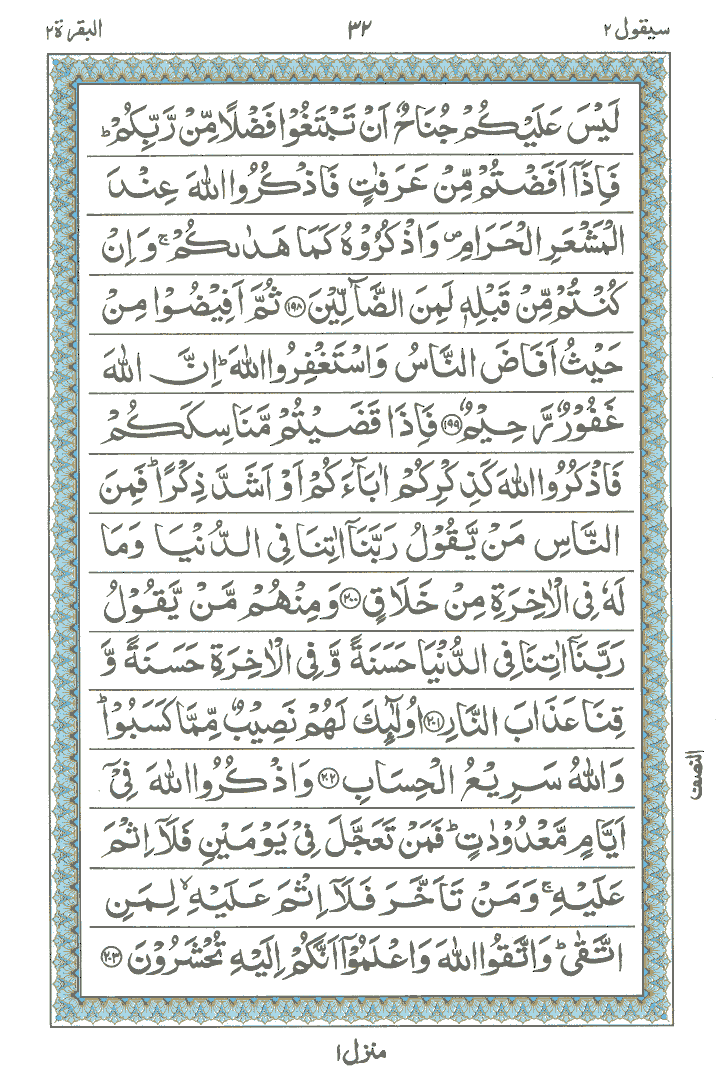 سيقول ٢
٣٢
البقرة ٢
لَيْسَ عَلَيْكُمْ جُنَاحٌ اَنْ تَبْتَغُوْا فَضْلًا مِّنْ رَّبِّكُمْ ؕ
فَاِذَاۤ اَفَضْتُمْ مِّنْ عَرَفٰتٍ فَاذْكُرُوا اللّٰهَ عِنْدَ
الْمَشْعَرِ الْحَرَامِ ۪ وَاذْكُرُوْهُ كَمَا هَدٰىكُمْ ۚ وَ اِنْ
كُنْتُمْ مِّنْ قَبْلِهٖ لَمِنَ الضَّآلِّيْنَ ﴿۱۹۸﴾ ثُمَّ اَفِيْضُوْا مِنْ
حَيْثُ اَفَاضَ النَّاسُ وَاسْتَغْفِرُوا اللّٰهَ ؕ اِنَّ اللّٰهَ
غَفُوْرٌ رَّحِيْمٌ ﴿۱۹۹﴾ فَاِذَا قَضَيْتُمْ مَّنَاسِكَكُمْ
فَاذْكُرُوا اللّٰهَ كَذِكْرِكُمْ اٰبَآءَكُمْ اَوْ اَشَدَّ ذِكْرًا ؕ فَمِنَ
النَّاسِ مَنْ يَّقُوْلُ رَبَّنَاۤ اٰتِنَا فِى الدُّنْيَا وَمَا
لَهٗ فِى الْاٰخِرَةِ مِنْ خَلَاقٍ ﴿۲۰۰﴾ وَمِنْهُمْ مَّنْ يَّقُوْلُ
رَبَّنَاۤ اٰتِنَا فِى الدُّنْيَا حَسَنَةً وَّ فِى الْاٰخِرَةِ حَسَنَةً وَّ
قِنَا عَذَابَ النَّارِ ﴿۲۰۱﴾ اُولٰٓئِكَ لَهُمْ نَصِيْبٌ مِّمَّا كَسَبُوْا ؕ
وَاللّٰهُ سَرِيْعُ الْحِسَابِ ﴿۲۰۲﴾ وَاذْكُرُوا اللّٰهَ فِيْۤ
اَيَّامٍ مَّعْدُوْدٰتٍ ؕ فَمَنْ تَعَجَّلَ فِيْ يَوْمَيْنِ فَلَاۤ اِثْمَ
عَلَيْهِ ۚ وَمَنْ تَاَخَّرَ فَلَاۤ اِثْمَ عَلَيْهِ ۙ لِمَنِ
اتَّقٰى ؕ وَاتَّقُوا اللّٰهَ وَاعْلَمُوْۤا اَنَّكُمْ اِلَيْهِ تُحْشَرُوْنَ ﴿۲۰۳﴾
النصف
منزل ١